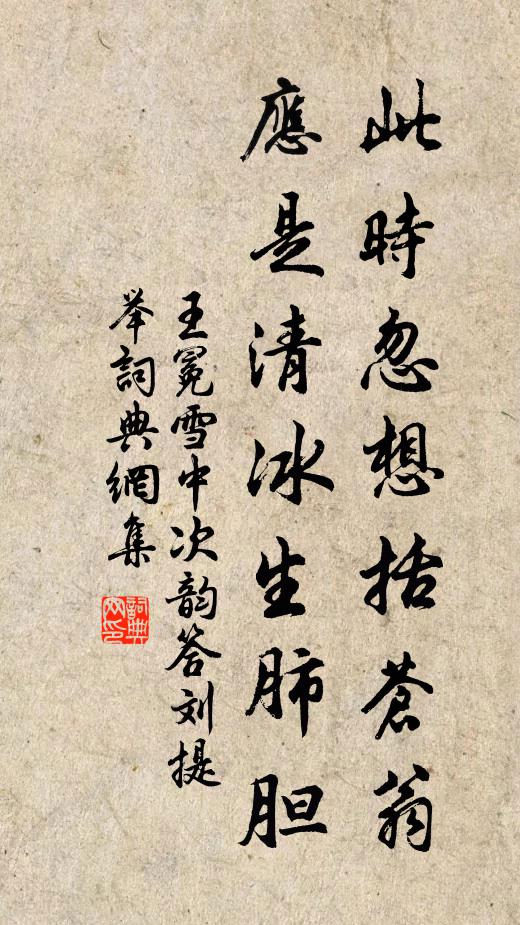 此時忽想括蒼翁
應是清冰生肺胆
王冕雪中次韵答刘提
举詞典網集
詞典網印